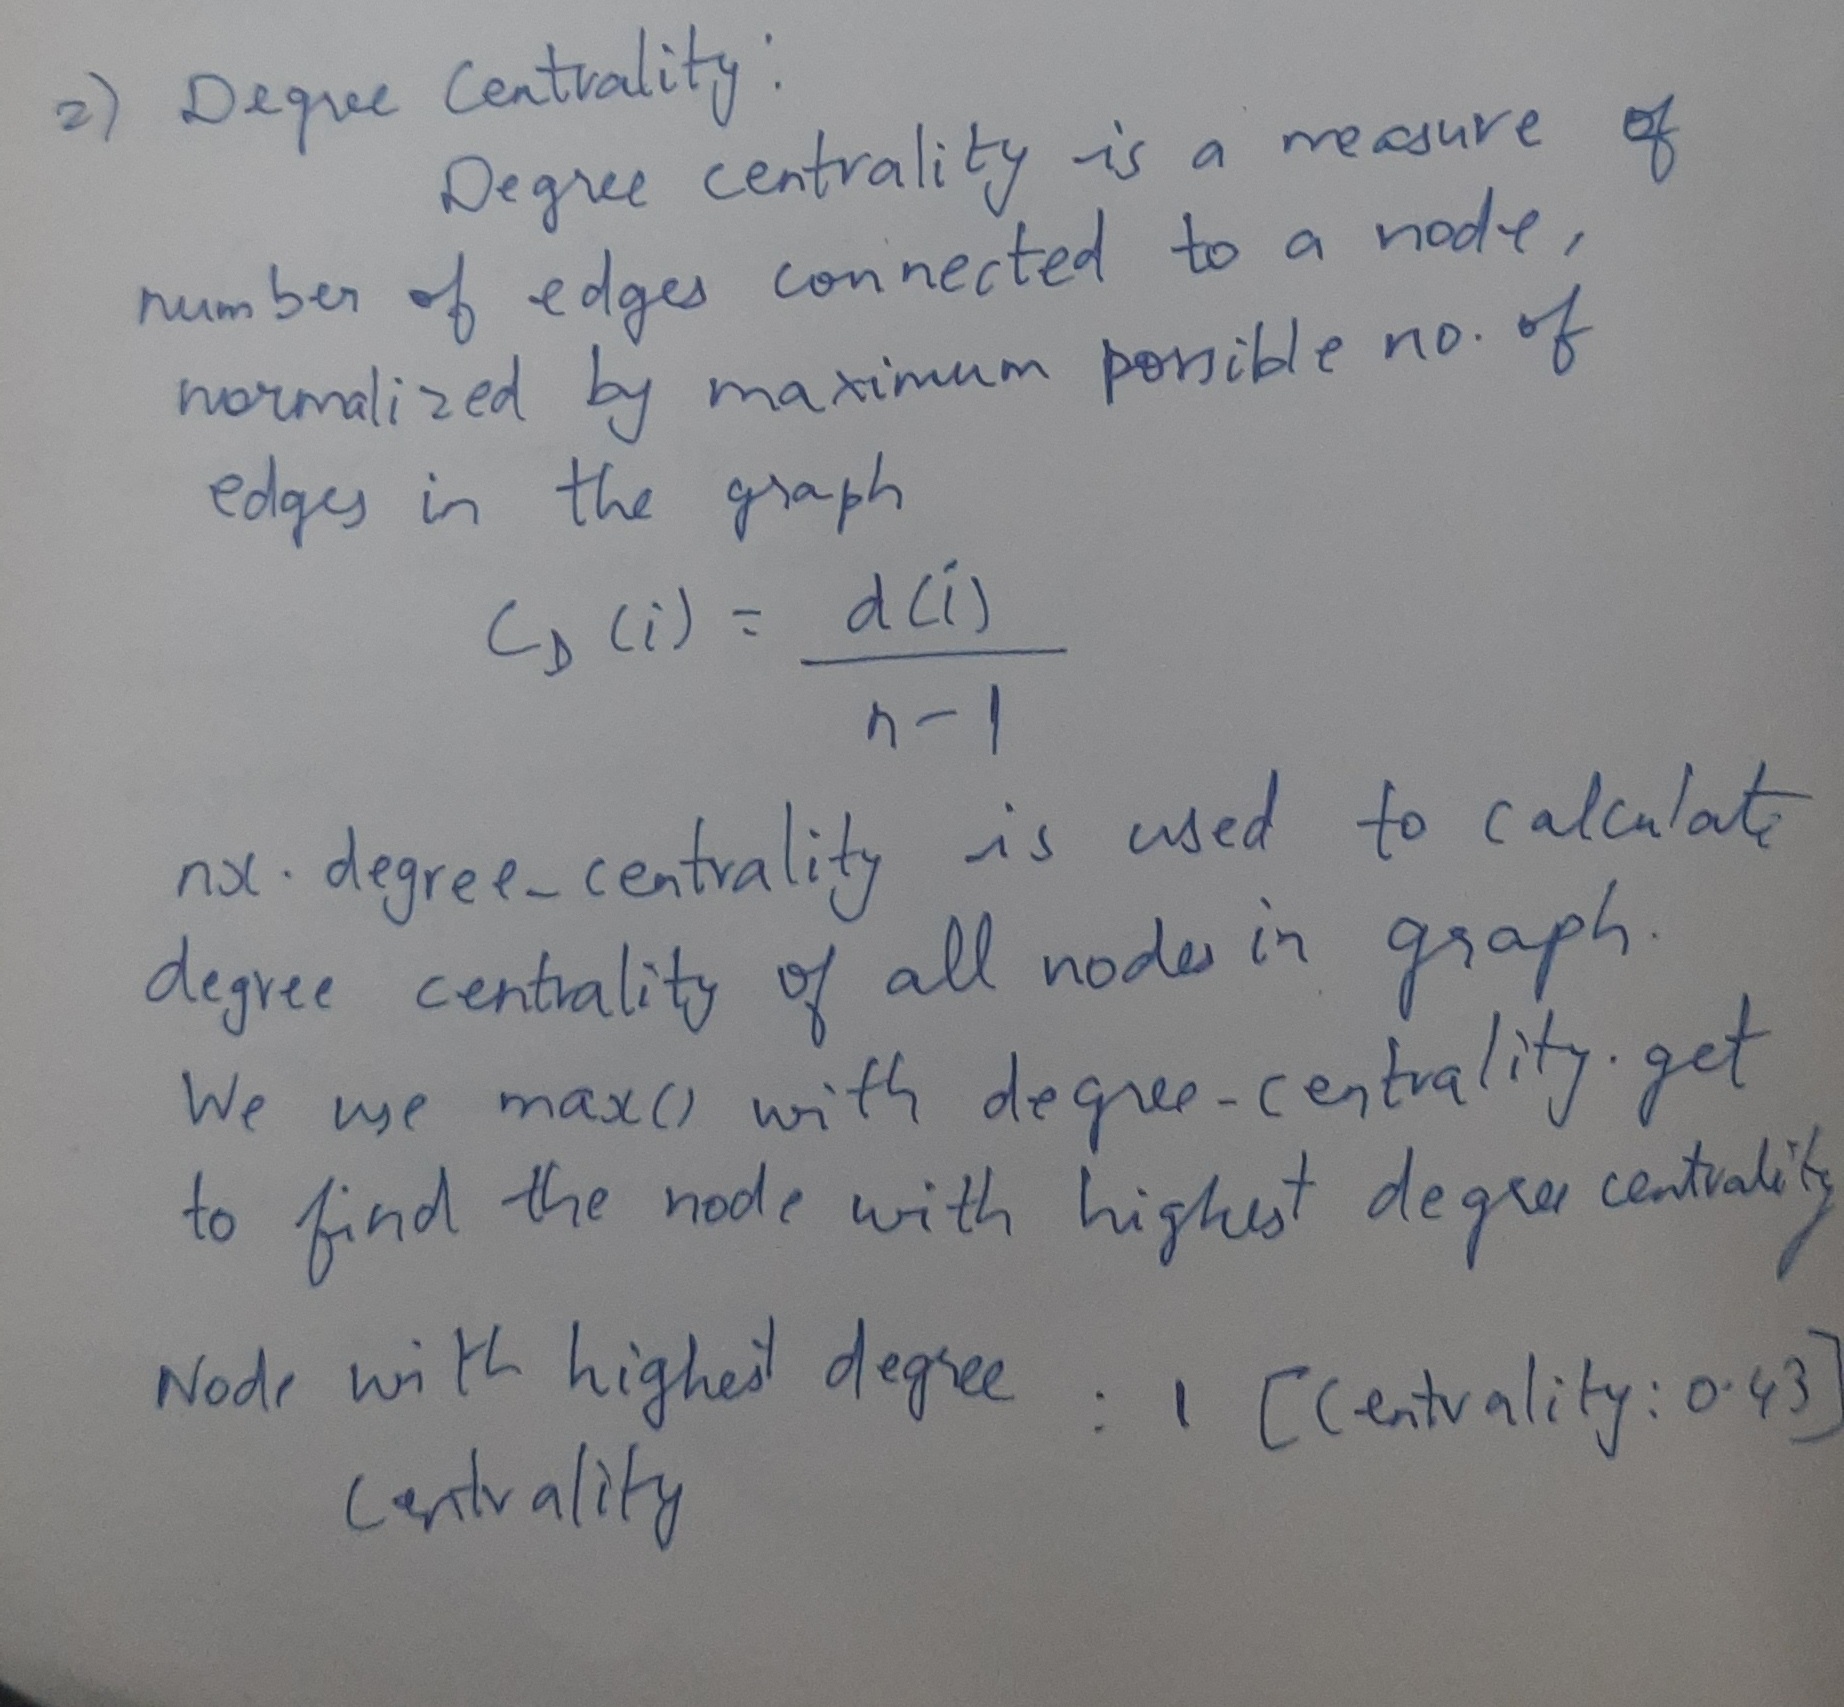 2) Degree Centrality:
Degree centrality is a measure of
number of edges connected to a node,
normalized by maximum possible no. of
edges in the graph
C_D (i) = d(i)
n-1
nx. degree_centrality is used to calculate
degree centrality of all nodes in graph.
We use max() with degree-centrality.get
to find the node with highest degree centrality
Node with highest degree : 1 [Centrality: 0.43]
Centrality